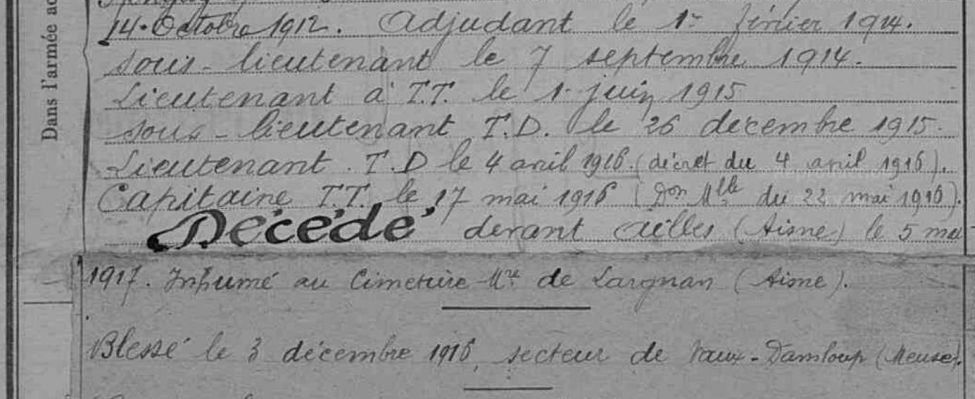 14 Octobre 1912. Adjudant le 1er février 1914.
sous-lieutenant le 7 septembre 1914.
Lieutenant à T.T. le 1er juin 1915
sous-lieutenant T.D. le 26 décembre 1915.
Lieutenant T.D le 4 avril 1916 (décret du 4 avril 1916).
Capitaine T.T. le 17 mai 1916 (Don Mlle du 22 mai 1916).
Décédé devant Ailles (Aisne) le 5 mai
1917. Inhumé au Cimetière Mre de Largnan (Aisne).
Blessé le 3 décembre 1916, secteur de Vaux-Damloup (Meuse).
Dans l'armée ac